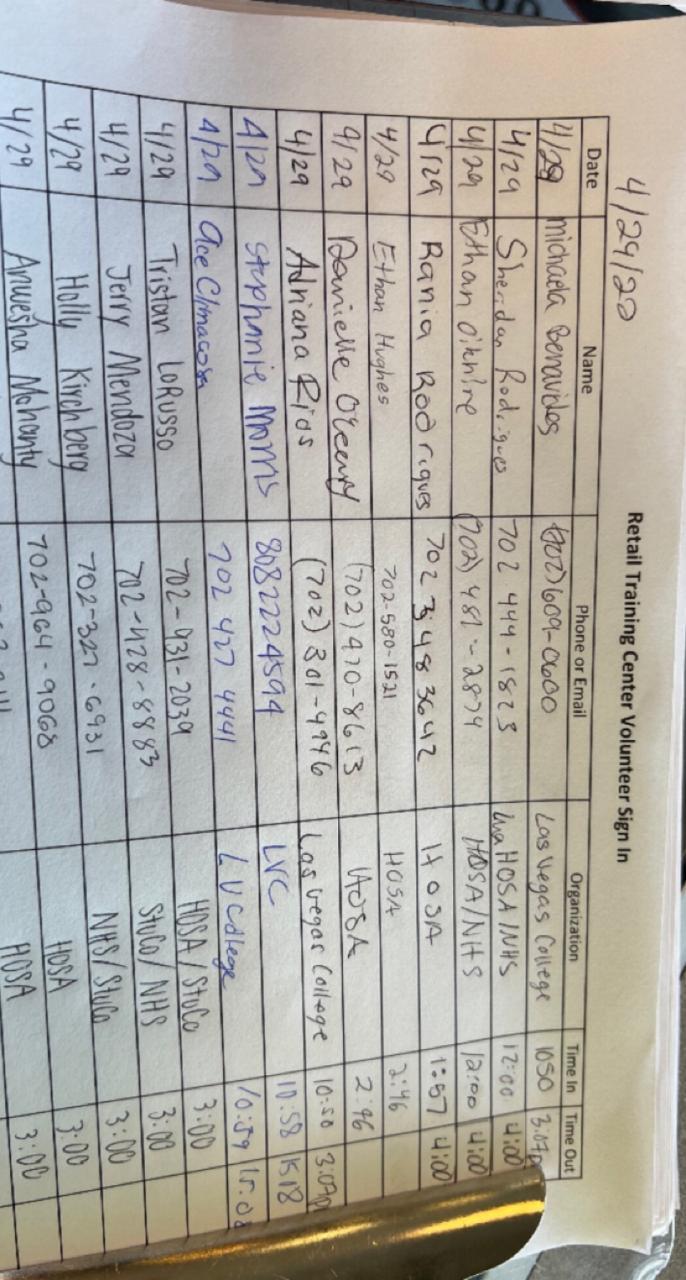 4/29/20
Retail Training Center Volunteer Sign In
Date Name Phone or Email Organization Time In Time Out
4/29 michaela Benavides (702)609-0600 Las Vegas College 1050 3:07p
4/29 Sheridan Rodrigues 702 449-1825 HOSA/NHS 12:00 4:00
4/29 Ethan (702) 481-2879 HOSA/NHS 12:00 4:00
4/29 Rania Rodrigues 702 348 3642 HOSA 1:57 4:00
4/29 Ethan Hughes 702-580-1521 HOSA 2:46
4/29 Danielle (702)470-8613 HOSA 2:46
4/29 Adriana Rios (702) 301-4946 Las Vegas College 10:50 3:07p
4/29 Stephanie Morris 8082224594 LVC 10:58 1518
4/29 Ace Climacosa 702 427 4441 LV College 10:59 15:08
4/29 Tristan LoRusso 702-931-2039 HOSA/StuCo 3:00
4/29 Jerry Mendoza 702-428-8883 StuCo/NHS 3:00
4/29 Holly Kirchberg 702-327-6931 NHS/StuCo 3:00
4/29 Anwesha Mohanty 702-964-9068 HOSA 3:00
HOSA 3:00